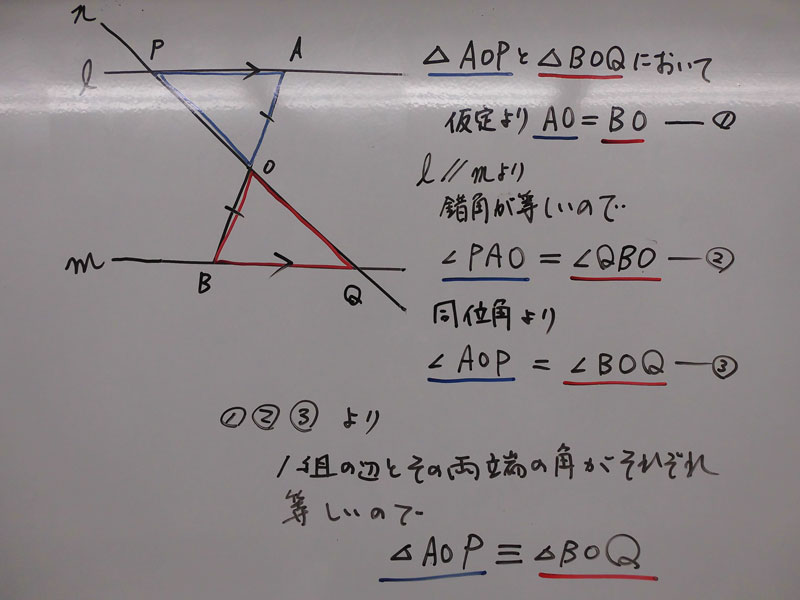 n
P
A
l
O
m
B
Q
△AOPと△BOQにおいて
仮定より AO=BO ―①
l//mより
錯角が等しいので
∠PAO=∠QBO―②
同位角より
∠AOP=∠BOQ―③
①②③より
1組の辺とその両端の角がそれぞれ
等しいので
△AOP≡△BOQ